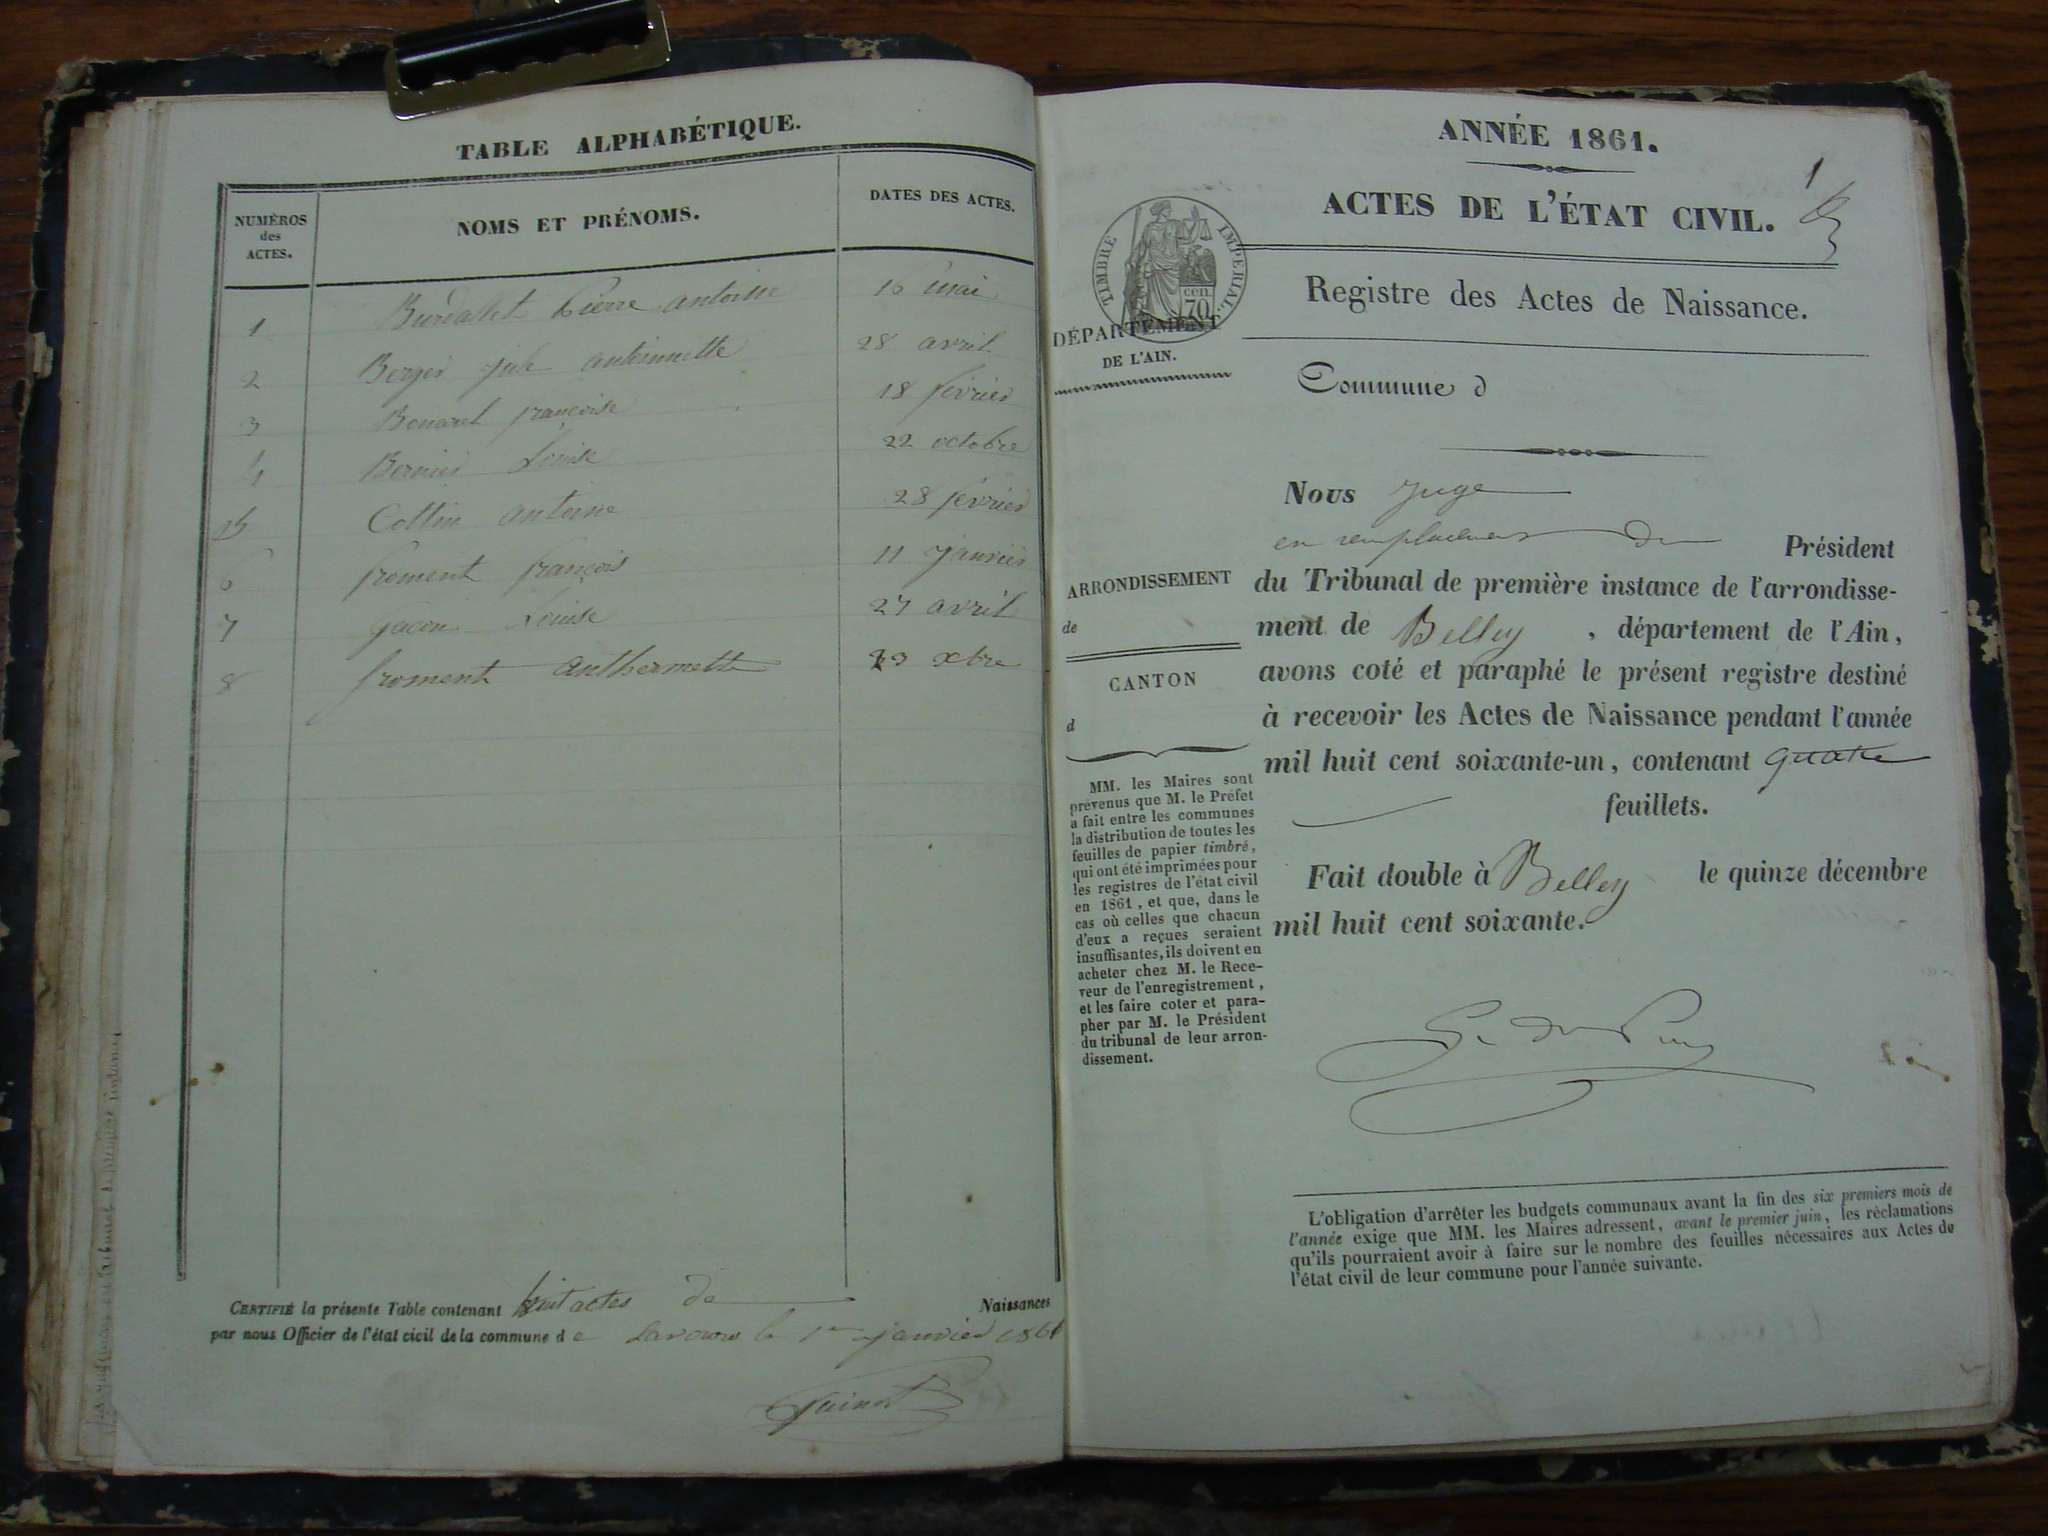 TABLE ALPHABÉTIQUE.
NUMÉROS
des
ACTES.
NOMS ET PRÉNOMS.
DATES DES ACTES.
1 Pierre antoine 16 mai
2 Berger antoinnette 28 avril
3 françoise 18 février
4 Bernier Louise 22 octobre
5 Cottin antoine 28 février
6 froment françois 11 janvier
7 gacon Louise 27 avril
8 froment anthermette xbre
CERTIFIÉ la présente Table contenant huit actes de Naissances
par nous Officier de l'état cicil de la commune de Lavours le 1er janvier 1861
ANNÉE 1861.
1
ACTES DE L'ÉTAT CIVIL.
TIMBRE IMPERIAL.
cen.
70
Registre des Actes de Naissance.
DÉPARTEMENT
DE L'AIN.
Commune d
Nous juge
en remplacement du Président
du Tribunal de première instance de l'arrondisse-
ment de Belley, département de l'Ain,
avons coté et paraphé le présent registre destiné
à recevoir les Actes de Naissance pendant l'année
mil huit cent soixante-un, contenant quatre
feuillets.
Fait double à Belley le quinze décembre
mil huit cent soixante.
ARRONDISSEMENT
de
CANTON
d
MM. les Maires sont
prévenus que M. le Préfet
a fait entre les communes
la distribution de toutes les
feuilles de papier timbré,
qui ont été imprimées pour
les registres de l'état civil
en 1861, et que, dans le
cas où celles que chacun
d'eux a reçues seraient
insuffisantes, ils doivent en
acheter chez M. le Rece-
veur de l'enregistrement,
et les faire coter et para-
pher par M. le Président
du tribunal de leur arron-
dissement.
L'obligation d'arrêter les budgets communaux avant la fin des six premiers mois de
l'année exige que MM. les Maires adressent, avant le premier juin, les réclamations
qu'ils pourraient avoir à faire sur le nombre des feuilles nécessaires aux Actes de
l'état civil de leur commune pour l'année suivante.